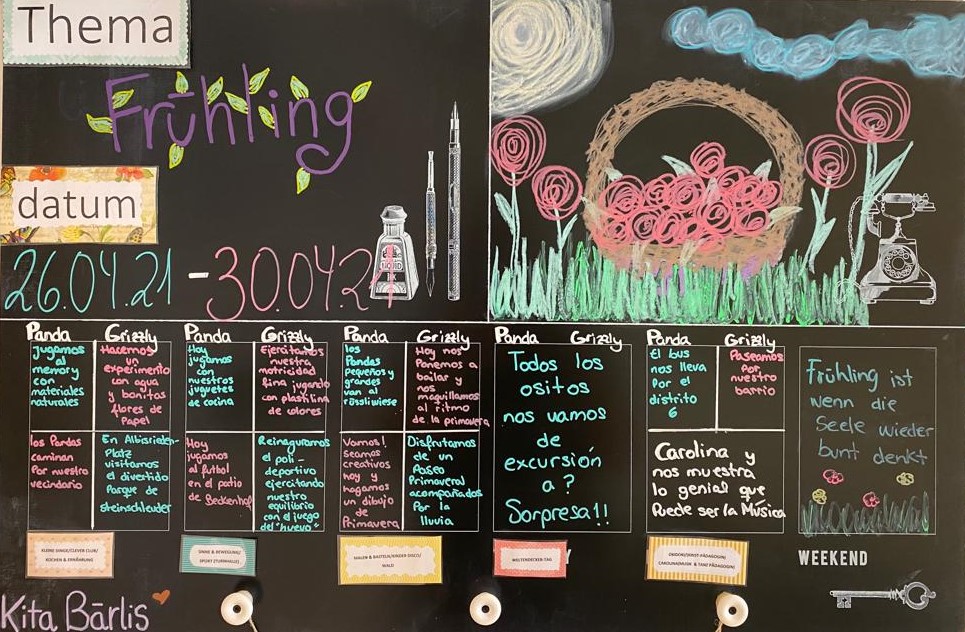 Thema
Frühling
datum
26.04.21 - 30.04.21
Panda
Grizzly
Jugamos
al
memory
con
materiales
naturales
Hacemos
un
experimento
con agua
y bonitas
flores de
Papel
los Pandas
caminan
Por nuestro
vecindario
En Albisrieder-
Platz
visitamos
el divertido
Parque de
steinschleuder
Panda
Grizzly
Hoy
jugamos
con
nuestros
juguetes
de cocina
Ejercitamos
nuestra
motricidad
fina jugando
con plastilina
de colores
Hoy
jugamos
al futbol
en el patio
de Beckenhof
Reinaguramos
el poli-
deportivo
ejercitando
nuestro
equilibrio
con el juego
del "huevo"
Panda
Grizzly
los
Pandas
pequeños y
grandes
van al
rössliwiese
Hoy nos
Ponemos a
bailar y
nos
maquillamos
al ritmo
de la primavera
Vamos!
seamos
creativos
hoy y
hagamos
un dibujo
de
Primavera
Disfrutamos
de un
Paseo
Primaveral
acompañados
Por la
lluvia
Panda
Grizzly
Todos los
ositos
nos vamos
de
excursión
a?
Sorpresa!!
Panda
Grizzly
El bus
nos lleva
Por el
distrito
6
Paseamos
Por
nuestro
barrio
Carolina y
nos muestra
lo genial que
Puede ser la Música
Frühling ist
wenn die
Seele wieder
bunt denkt
KLEINE DINGE/CLEVER CLUB/
KOCHEN & ERNÄHRUNG
SINNE & BEWEGUNG/
SPORT (TURNHALLE)
MALEN & BASTELN/KINDER DISCO/
WALD
WELTENDECKER-TAG
WEEKEND
Kita Bärlis